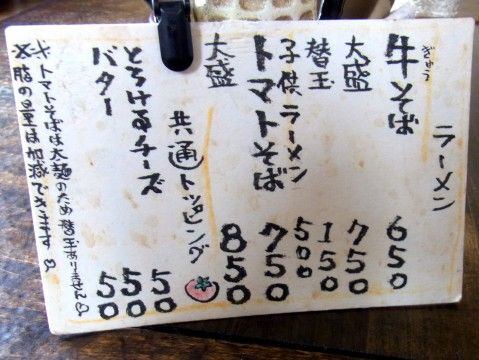 ラーメン
牛そば 650
ぎゅう
大盛 750
替玉 150
子供ラーメン 500
トマトそば 750
大盛 850
共通トッピング
とろけるチーズ
バター
50
50
50
※トマトそばは太麺のため替玉ありません
※脂の量は加減できます